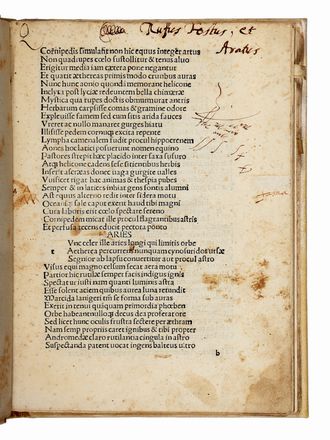 Rufus Festus, et
Aratus
Cornipedis simulasit non hic equus integer artus
Non quadrupes coelo sustollitur & tenus aluo
Erigitur media iam caetera pone negantur
Et quatit aethereas primis modo cruribus auras
Nunc hunc aenio quondam memorant helicone
Inclyta post lyciae redeuntem bella chimaerae
Mystica qua rupes doctis obmurmurat antris
Herbarum carpsisse comas & gramine odore
Expleuisse famem sed cum sitis arida fauces
Vreret ac nullo manaret gurges hiatu
Illisisse pedem cornuque excita repente
Lympha camenalem fudit procul hippocrenem
Aones hoc latici posuerunt nomen equino
Pastores strepit haec placido inter saxa susuro
Arque heliconis cadens sese sitientibus herbis
Inserit ascraeas donec iuga gurgite ualles
Viuificet rigat hac animas & thespia pubes
Semper & in latices inhiat gens fontis alumni
Ast equus alterno redit inter sidera motu
Oceani salo caput exerit haud tibi magni
Cura laboris erit coelo spectare sereno
Cornipedem micat ille procul flagrantibus astris
Et perfusa recens educit pectora ponto
ARIES
t
Vnc celer ille aries longi qui limitis orbe
Aetherea percurrens nunquam cynosuridos ursae
Segnior ab lapsu conuertitur aut procul astro
Visus equi magno cessim secat aera motu
Parcior hic rutilae semper facis indigus ignis
Spectatur iusti nam quanti lumina astra
Esse solent aciem quibus aurea luna retundit
Marcida lanigeri tum se forma sub auras
Exerit in tenui quiquam primordia phoebum
Orbe habeant nulloque decus dea proferat ore
Sed licet hunc oculis frustra sectere per aethram
Nam semp propriis caret ignibus & tibi propter
Andromedae claro rutilantia cingula in astro
Suspectanda patent uocat ingens balteus ultro
b